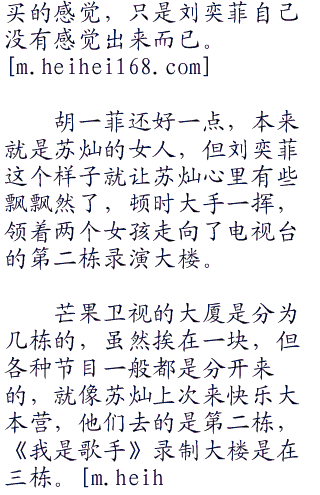 买的感觉，只是刘奕菲自己
没有感觉出来而已。
[m.heihei168.com]
胡一菲还好一点，本来
就是苏灿的女人，但刘奕菲
这个样子就让苏灿心里有些
飘飘然了，顿时大手一挥，
领着两个女孩走向了电视台
的第二栋录演大楼。
芒果卫视的大厦是分为
几栋的，虽然挨在一块，但
各种节目一般都是分开来
的，就像苏灿上次来快乐大
本营，他们去的是第二栋，
《我是歌手》录制大楼是在
三栋。[m.heih